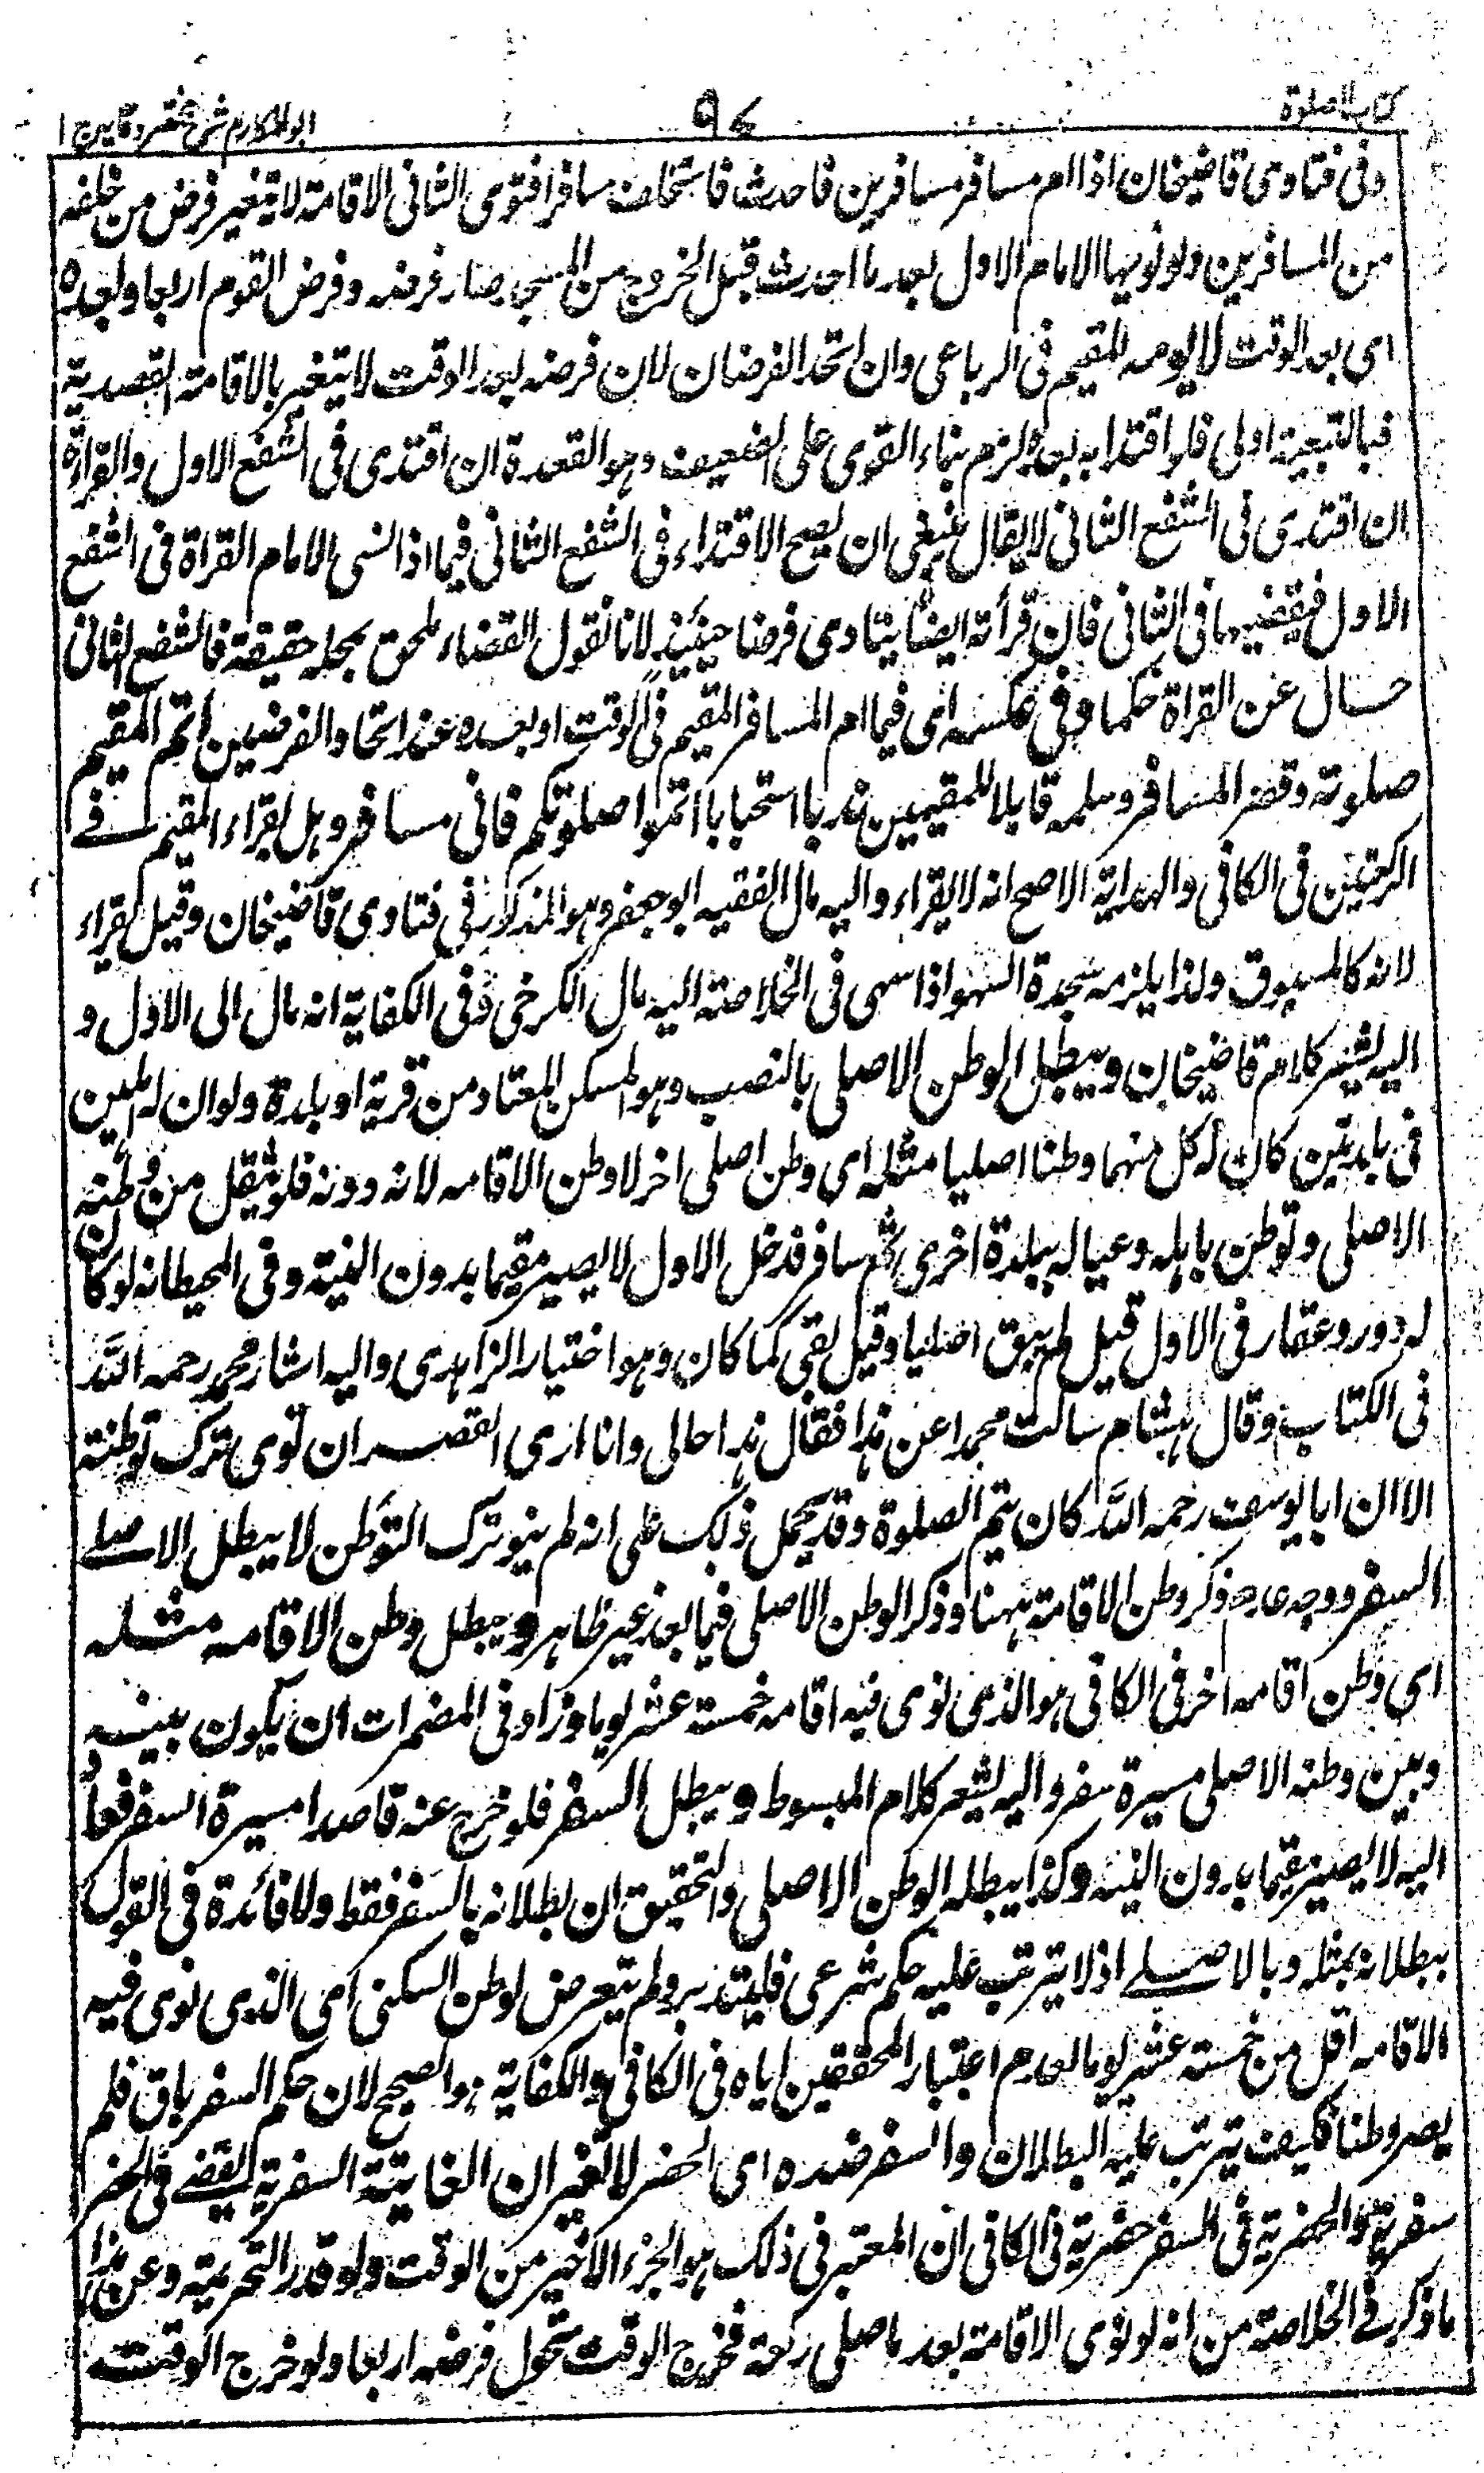 كتاب الصلوة
٩٧
ابو المكارم شرح مختصر وقايه ج ١
وفى فتاوى قاضيخان اذا ام مسافر مسافرين فاحدث فاستخلف مسافرا فنوى الثانى الاقامة لا يتغير فرض من خلفه
من المسافرين ولو نويها الامام الاول بعد ما احدث قبل الخروج من المسجد صار فرضه وفرض القوم اربعا وبعده
اى بعد الوقت لا يومه المقيم فى الرباعى وان اتحد الفرضان لان فرضه بعد الوقت لا يتغير بالاقامة القصدية
فبالتبعية اولى فلو اقتدا به بعده لزم بناء القوى على الضعيف وهو القعدة ان اقتدى فى الشفع الاول والقراءة
ان اقتدى فى الشفع الثانى لا يقال ينبغى ان يصح الاقتداء فى الشفع الثانى فيما اذا نسى الامام القراة فى الشفع
الاول فيقضيها فى الثانى فان قرأته ايضا يتادى فرضا حينئذ لانا نقول القضاء ملحق بمحله حقيقة فالشفع الثانى
خال عن القراة حكما وفى عكسه اى فيما ام المسافر المقيم فى الوقت او بعده عند اتحاد الفرضين اتم المقيم
صلوته وقصر المسافر وسلم قايلا للمقيمين ندبا استحبابا اتموا صلوتكم فانى مسافر وهل يقراء المقيم فى
الركعتين فى الكافى والهداية الاصح انه لا يقراء واليه مال الفقيه ابو جعفر وهو المذكور فى فتاوى قاضيخان وقيل يقراء
لانه كالمسبوق ولذا يلزمه سجدة السهو اذا سهى فى الخلاصة اليه مال الكرخى وفى الكفاية انه مال الى الاول و
اليه يشير كلام قاضيخان ويبطل الوطن الاصلى بالنصب وهو المسكن المعتاد من قرية او بلدة ولو ان له اهلين
فى بلدتين كان له كل منهما وطنا اصليا مثله اى وطن اصلى اخر لا وطن الاقامه لانه دونه فلو نتقل من وطنه
الاصلى وتوطن باهله وعياله ببلدة اخرى ثم سافر فدخل الاول لا يصير مقيما بدون النية وفى المحيط انه لو كان
له دور وعقار فى الاول قيل لم يبق اصليا وقيل بقى كما كان وهو اختيار الزاهدى واليه اشار محمد رحمه الله
فى الكتاب وقال هشام سالت محمدا عن هذا فقال هذا حالى وانا ارى القصر ان نوى ترك توطنه
الا ان ابا يوسف رحمه الله كان يتم الصلوة وقد يحمل ذلك على انه لم ينو ترك التوطن لا يبطل الاصلے
السفر ووجه ذكر وطن الاقامة ههنا وذكر الوطن الاصلى فيما بعد غير ظاهر ويبطل وطن الاقامه مثله
اى وطن اقامه اخر فى الكافى هو الذى نوى فيه اقامه خمسته عشر يوما وزاد فى المضمرات ان يكون بينه
وبين وطنه الاصلى مسيرة سفر واليه يشعر كلام المبسوط ويبطل السفر فلو خرج عنه قاصدا مسيرة السفر فعاد
اليه لا يصير مقيما بدون النيه وكذا يبطله الوطن الاصلى والتحقيق ان بطلانه بالسفر فقط ولا فائدة فى القول
ببطلانه بمثله وبالاصلے اذ لا يترتب عليه حكم شرعى فليتدبر ولم يتعرض لوطن السكنى اى الذى نوى فيه
الاقامه اقل من خمسته عشر يوما لعدم اعتبار المحققين اياه فى الكافى والكفاية هو الصحيح لان حكم السفر باق فلم
يصر وطنا فكيف يترتب عليه البطلان والسفر ضده اى الحضر لا تغير ان الفائتة السفرية ليقضے فى الحضر
سفرية والحضرية فى السفر حضرية فى الكافى ان المعتبر فى ذلك هو الجزء الاخير من الوقت ولو قدر التحريمة وعن هذا
ما ذكر فى الخلاصة من انه لو نوى الاقامة بعد ما صلى ركعة فخرج الوقت تحول فرضه اربعا ولو خرج الوقت